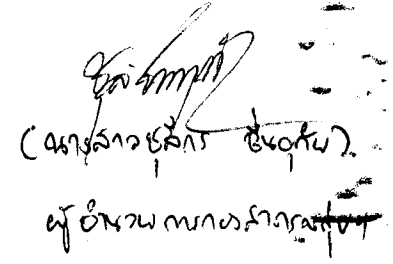 (นางสาวชุลีกร ชื่นอุทัย)
ผู้อำนวยการกองสาธารณสุขฯ